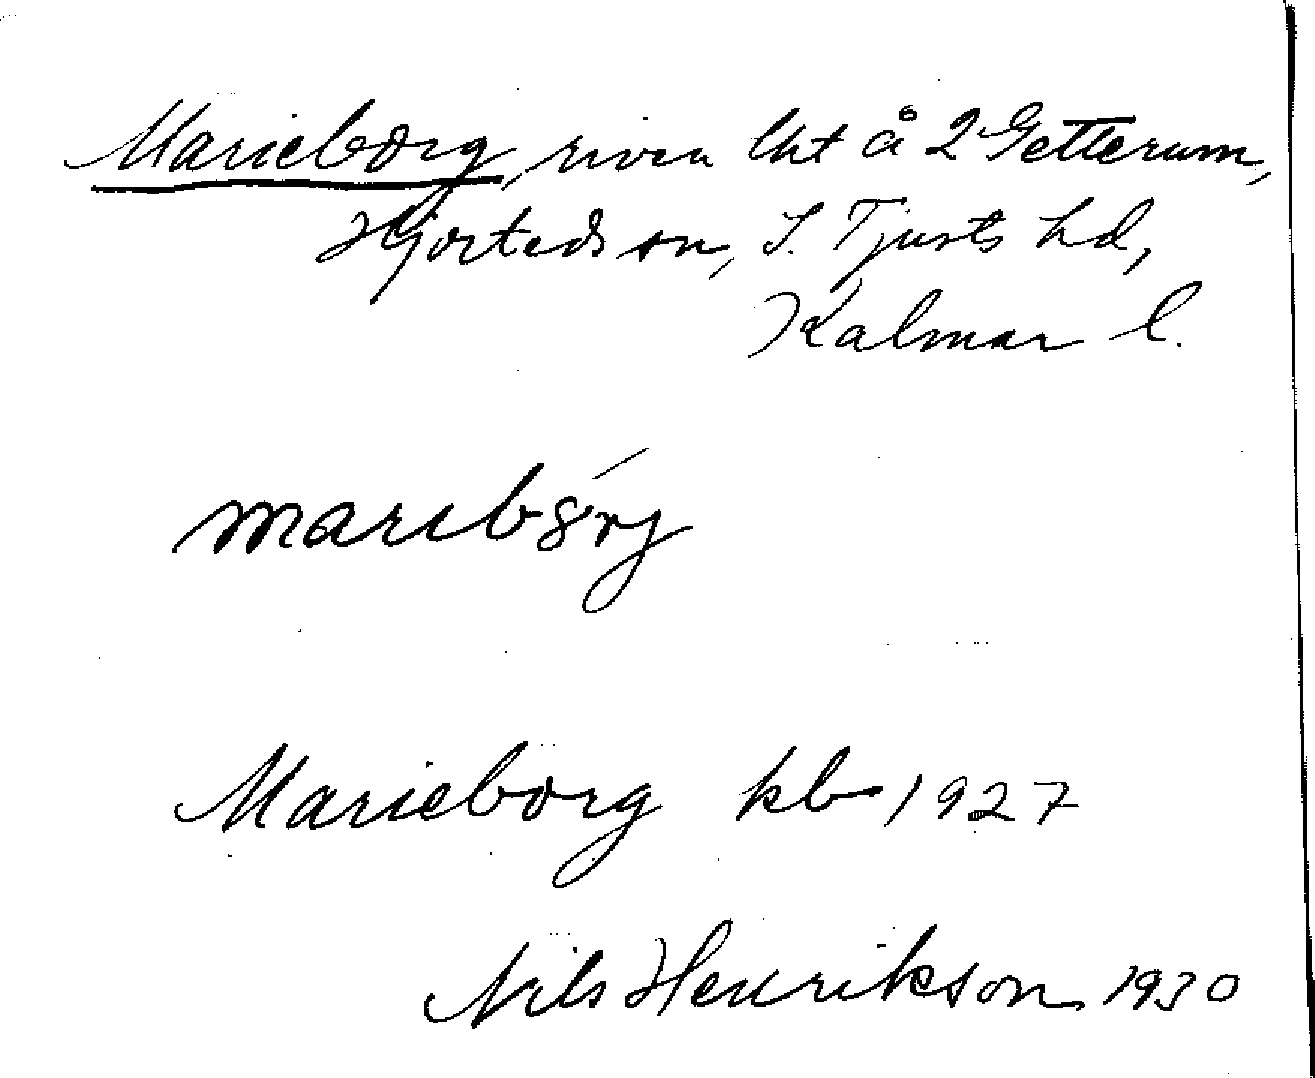 Marieborg, riven lht å 2 Getterum,
Hjorteds sn, S. Tjusts hd,
Kalmar l.
Marieborg kb 1927
Nils Henrikson 1930